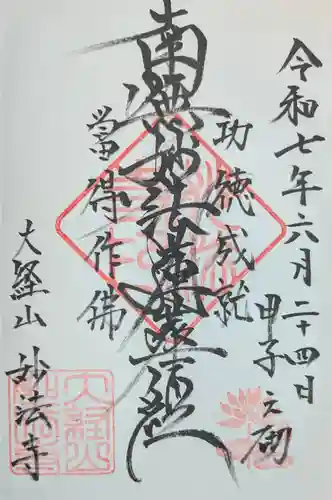 令和七年六月二十四日
甲子之砌
功徳成就
南無妙法蓮華経
當得作佛
大経山
妙法寺